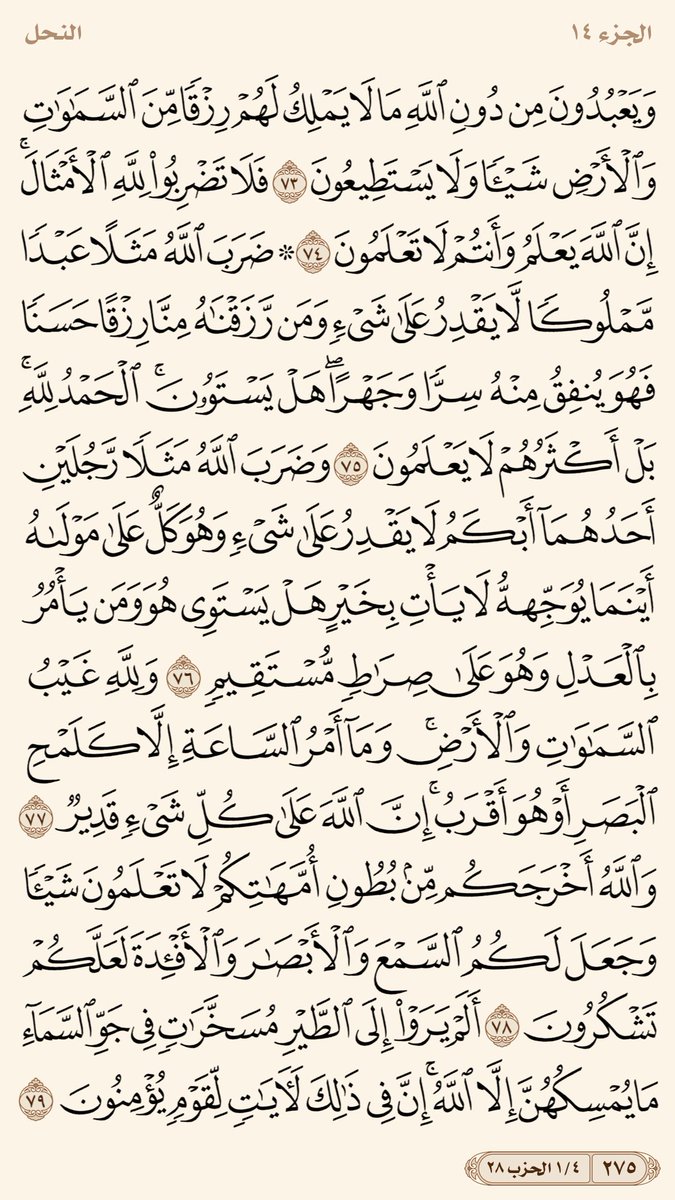 الجزء ١٤
النحل
وَيَعْبُدُونَ مِن دُونِ ٱللَّهِ مَا لَا يَمْلِكُ لَهُمْ رِزْقًا مِّنَ ٱلسَّمَٰوَٰتِ
وَٱلْأَرْضِ شَيْـًٔا وَلَا يَسْتَطِيعُونَ ٧٣ فَلَا تَضْرِبُوا۟ لِلَّهِ ٱلْأَمْثَالَ ۚ
إِنَّ ٱللَّهَ يَعْلَمُ وَأَنتُمْ لَا تَعْلَمُونَ ٧٤ * ضَرَبَ ٱللَّهُ مَثَلًا عَبْدًا
مَّمْلُوكًا لَّا يَقْدِرُ عَلَىٰ شَىْءٍ وَمَن رَّزَقْنَٰهُ مِنَّا رِزْقًا حَسَنًا
فَهُوَ يُنفِقُ مِنْهُ سِرًّا وَجَهْرًا ۖ هَلْ يَسْتَوُۥنَ ۚ ٱلْحَمْدُ لِلَّهِ ۚ
بَلْ أَكْثَرُهُمْ لَا يَعْلَمُونَ ٧٥ وَضَرَبَ ٱللَّهُ مَثَلًا رَّجُلَيْنِ
أَحَدُهُمَآ أَبْكَمُ لَا يَقْدِرُ عَلَىٰ شَىْءٍ وَهُوَ كَلٌّ عَلَىٰ مَوْلَىٰهُ
أَيْنَمَا يُوَجِّههُّ لَا يَأْتِ بِخَيْرٍ هَلْ يَسْتَوِى هُوَ وَمَن يَأْمُرُ
بِٱلْعَدْلِ وَهُوَ عَلَىٰ صِرَٰطٍ مُّسْتَقِيمٍ ٧٦ وَلِلَّهِ غَيْبُ
ٱلسَّمَٰوَٰتِ وَٱلْأَرْضِ ۚ وَمَآ أَمْرُ ٱلسَّاعَةِ إِلَّا كَلَمْحِ
ٱلْبَصَرِ أَوْ هُوَ أَقْرَبُ ۚ إِنَّ ٱللَّهَ عَلَىٰ كُلِّ شَىْءٍ قَدِيرٌ ٧٧
وَٱللَّهُ أَخْرَجَكُم مِّنۢ بُطُونِ أُمَّهَٰتِكُمْ لَا تَعْلَمُونَ شَيْـًٔا
وَجَعَلَ لَكُمُ ٱلسَّمْعَ وَٱلْأَبْصَٰرَ وَٱلْأَفْـِٔدَةَ لَعَلَّكُمْ
تَشْكُرُونَ ٧٨ أَلَمْ يَرَوْا۟ إِلَى ٱلطَّيْرِ مُسَخَّرَٰتٍ فِى جَوِّ ٱلسَّمَآءِ
مَا يُمْسِكُهُنَّ إِلَّا ٱللَّهُ ۚ إِنَّ فِى ذَٰلِكَ لَـَٔايَٰتٍ لِّقَوْمٍ يُؤْمِنُونَ ٧٩
٢٧٥ ١/٤ الحزب ٢٨